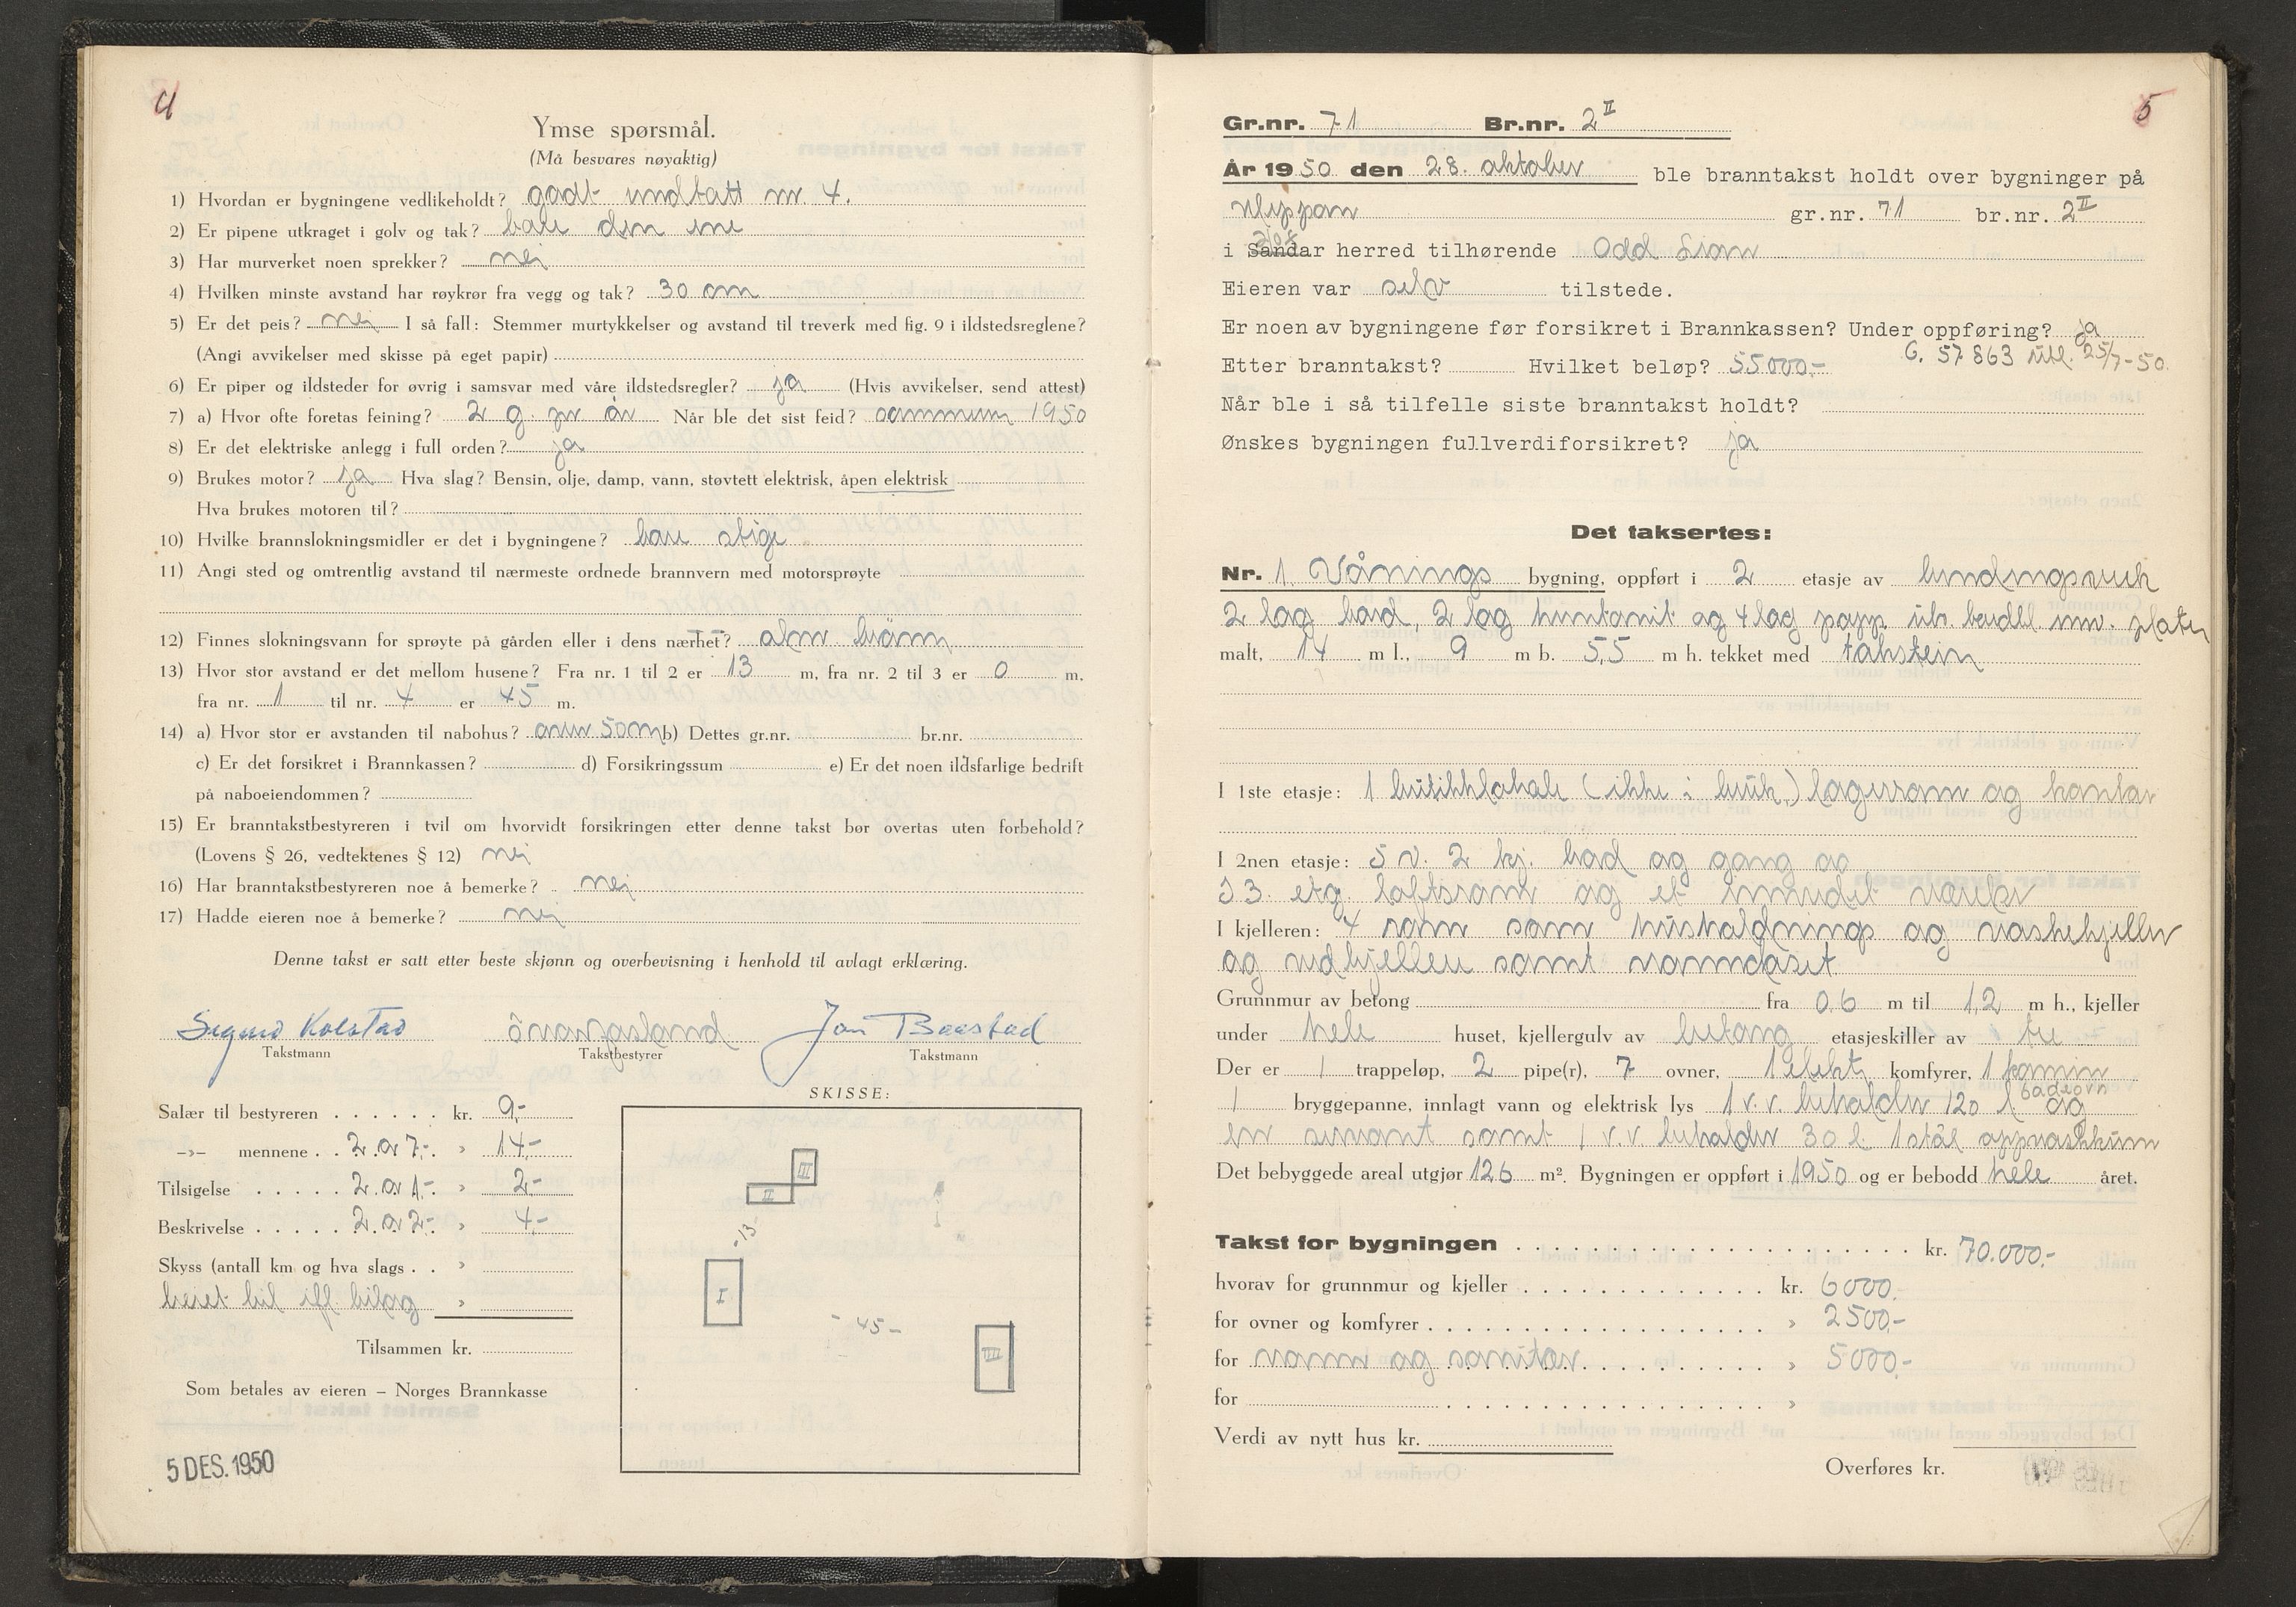 4
Ymse spørsmål.
(Må besvares nøyaktig)
1) Hvordan er bygningene vedlikeholdt? godt undtatt nr. 4.
2) Er pipene utkraget i golv og tak? bare den ene
3) Har murverket noen sprekker? nei
4) Hvilken minste avstand har røykrør fra vegg og tak? 30 cm
5) Er det peis? nei I så fall: Stemmer murtykkelser og avstand til treverk med fig. 9 i ildstedsreglene?
(Angi avvikelser med skisse på eget papir)
6) Er piper og ildsteder for øvrig i samsvar med våre ildstedsregler? ja (Hvis avvikelser, send attest)
7) a) Hvor ofte foretas feining? 2 g. pr år Når ble det sist feid? sommeren 1950
8) Er det elektriske anlegg i full orden? ja
9) Brukes motor? ja Hva slag? Bensin, olje, damp, vann, støvtett elektrisk, åpen elektrisk
Hva brukes motoren til?
10) Hvilke brannslokningsmidler er det i bygningene? bare stige
11) Angi sted og omtrentlig avstand til nærmeste ordnede brannvern med motorsprøyte
12) Finnes slokningsvann for sprøyte på gården eller i dens nærhet? alm. brönn
13) Hvor stor avstand er det mellom husene? Fra nr. 1 til 2 er 13 m, fra nr. 2 til 3 er 0 m.
fra nr. 1 til nr. 4 er 45 m.
14) a) Hvor stor er avstanden til nabohus? over 50 m b) Dettes gr.nr. br.nr.
c) Er det forsikret i Brannkassen? d) Forsikringssum e) Er det noen ildsfarlige bedrift
på naboeiendommen?
15) Er branntakstbestyreren i tvil om hvorvidt forsikringen etter denne takst bør overtas uten forbehold?
(Lovens § 26, vedtektenes § 12) nei
16) Har branntakstbestyreren noe å bemerke? nei
17) Hadde eieren noe å bemerke? nei
Denne takst er satt etter beste skjønn og overbevisning i henhold til avlagt erklæring.
Sigurd Kolstad
Takstmann Takstbestyrer Takstmann
SKISSE:
Salær til bestyreren . . . . . . kr. 9,-
-»- mennene . . 2 a 7,-. » 14,-
Tilsigelse . . . . . 2 a 1,-. » 2,-
Beskrivelse . . . . . 2 a 2,-. » 4,-
Skyss (antall km og hva slags . . »
leiet bil ifl. bilag »
Tilsammen kr.
Som betales av eieren – Norges Brannkasse
III
II
-13-
I
-45-
IIII
5 DES. 1950
5
Gr.nr. 71 Br.nr. 2 II
År 1950 den 28. oktober ble branntakst holdt over bygninger på
Klyppan gr.nr. 71 br.nr. 2 II
i Sandar herred tilhørende Odd Lian
Eieren var selv tilstede.
Er noen av bygningene før forsikret i Brannkassen? Under oppføring? ja
G. 57863 utl. 25/7-50.
Etter branntakst? Hvilket beløp? 55000,-
Når ble i så tilfelle siste branntakst holdt?
Ønskes bygningen fullverdiforsikret? ja
Det taksertes:
Nr. 1. Vånings bygning, oppført i 2 etasje av bindingsverk
2 lag bord, 2 lag huntonit og 4 lag papp utv. bordkl. innv. plater
malt, 14 m l., 9 m b. 5,5 m h. tekket med takstein
I 1ste etasje: 1 butikklokale (ikke i bruk) lagerrom og kontor
I 2nen etasje: 5 v. 2 kj. bad og gang og
I 3. etg. loftsrom og et innredet værelse
I kjelleren: 4 rom som husholdnings og vaskekjeller
og vedkjeller samt vannclosit
Grunnmur av betong fra 0,6 m til 1,2 m h., kjeller
under hele huset, kjellergulv av betong etasjeskiller av tre
Der er 1 trappeløp, 2 pipe(r), 7 ovner, 1 elektr. komfyrer, 1 kamin
badeovn
1 bryggepanne, innlagt vann og elektrisk lys 1 v.v. beholder 120 l og
en servant samt 1 v.v. beholder 30 l. 1 stål oppvaskkum
Det bebyggede areal utgjør 126 m². Bygningen er oppført i 1950 og er bebodd hele året.
Takst for bygningen . . . . . kr. 70.000,-
hvorav for grunnmur og kjeller . . . . . kr. 6000.
for ovner og komfyrer . . . . . » 2500,-
for vann og sanitær . . . . . » 5000,-
for . . . . . »
Verdi av nytt hus kr.
Overføres kr.